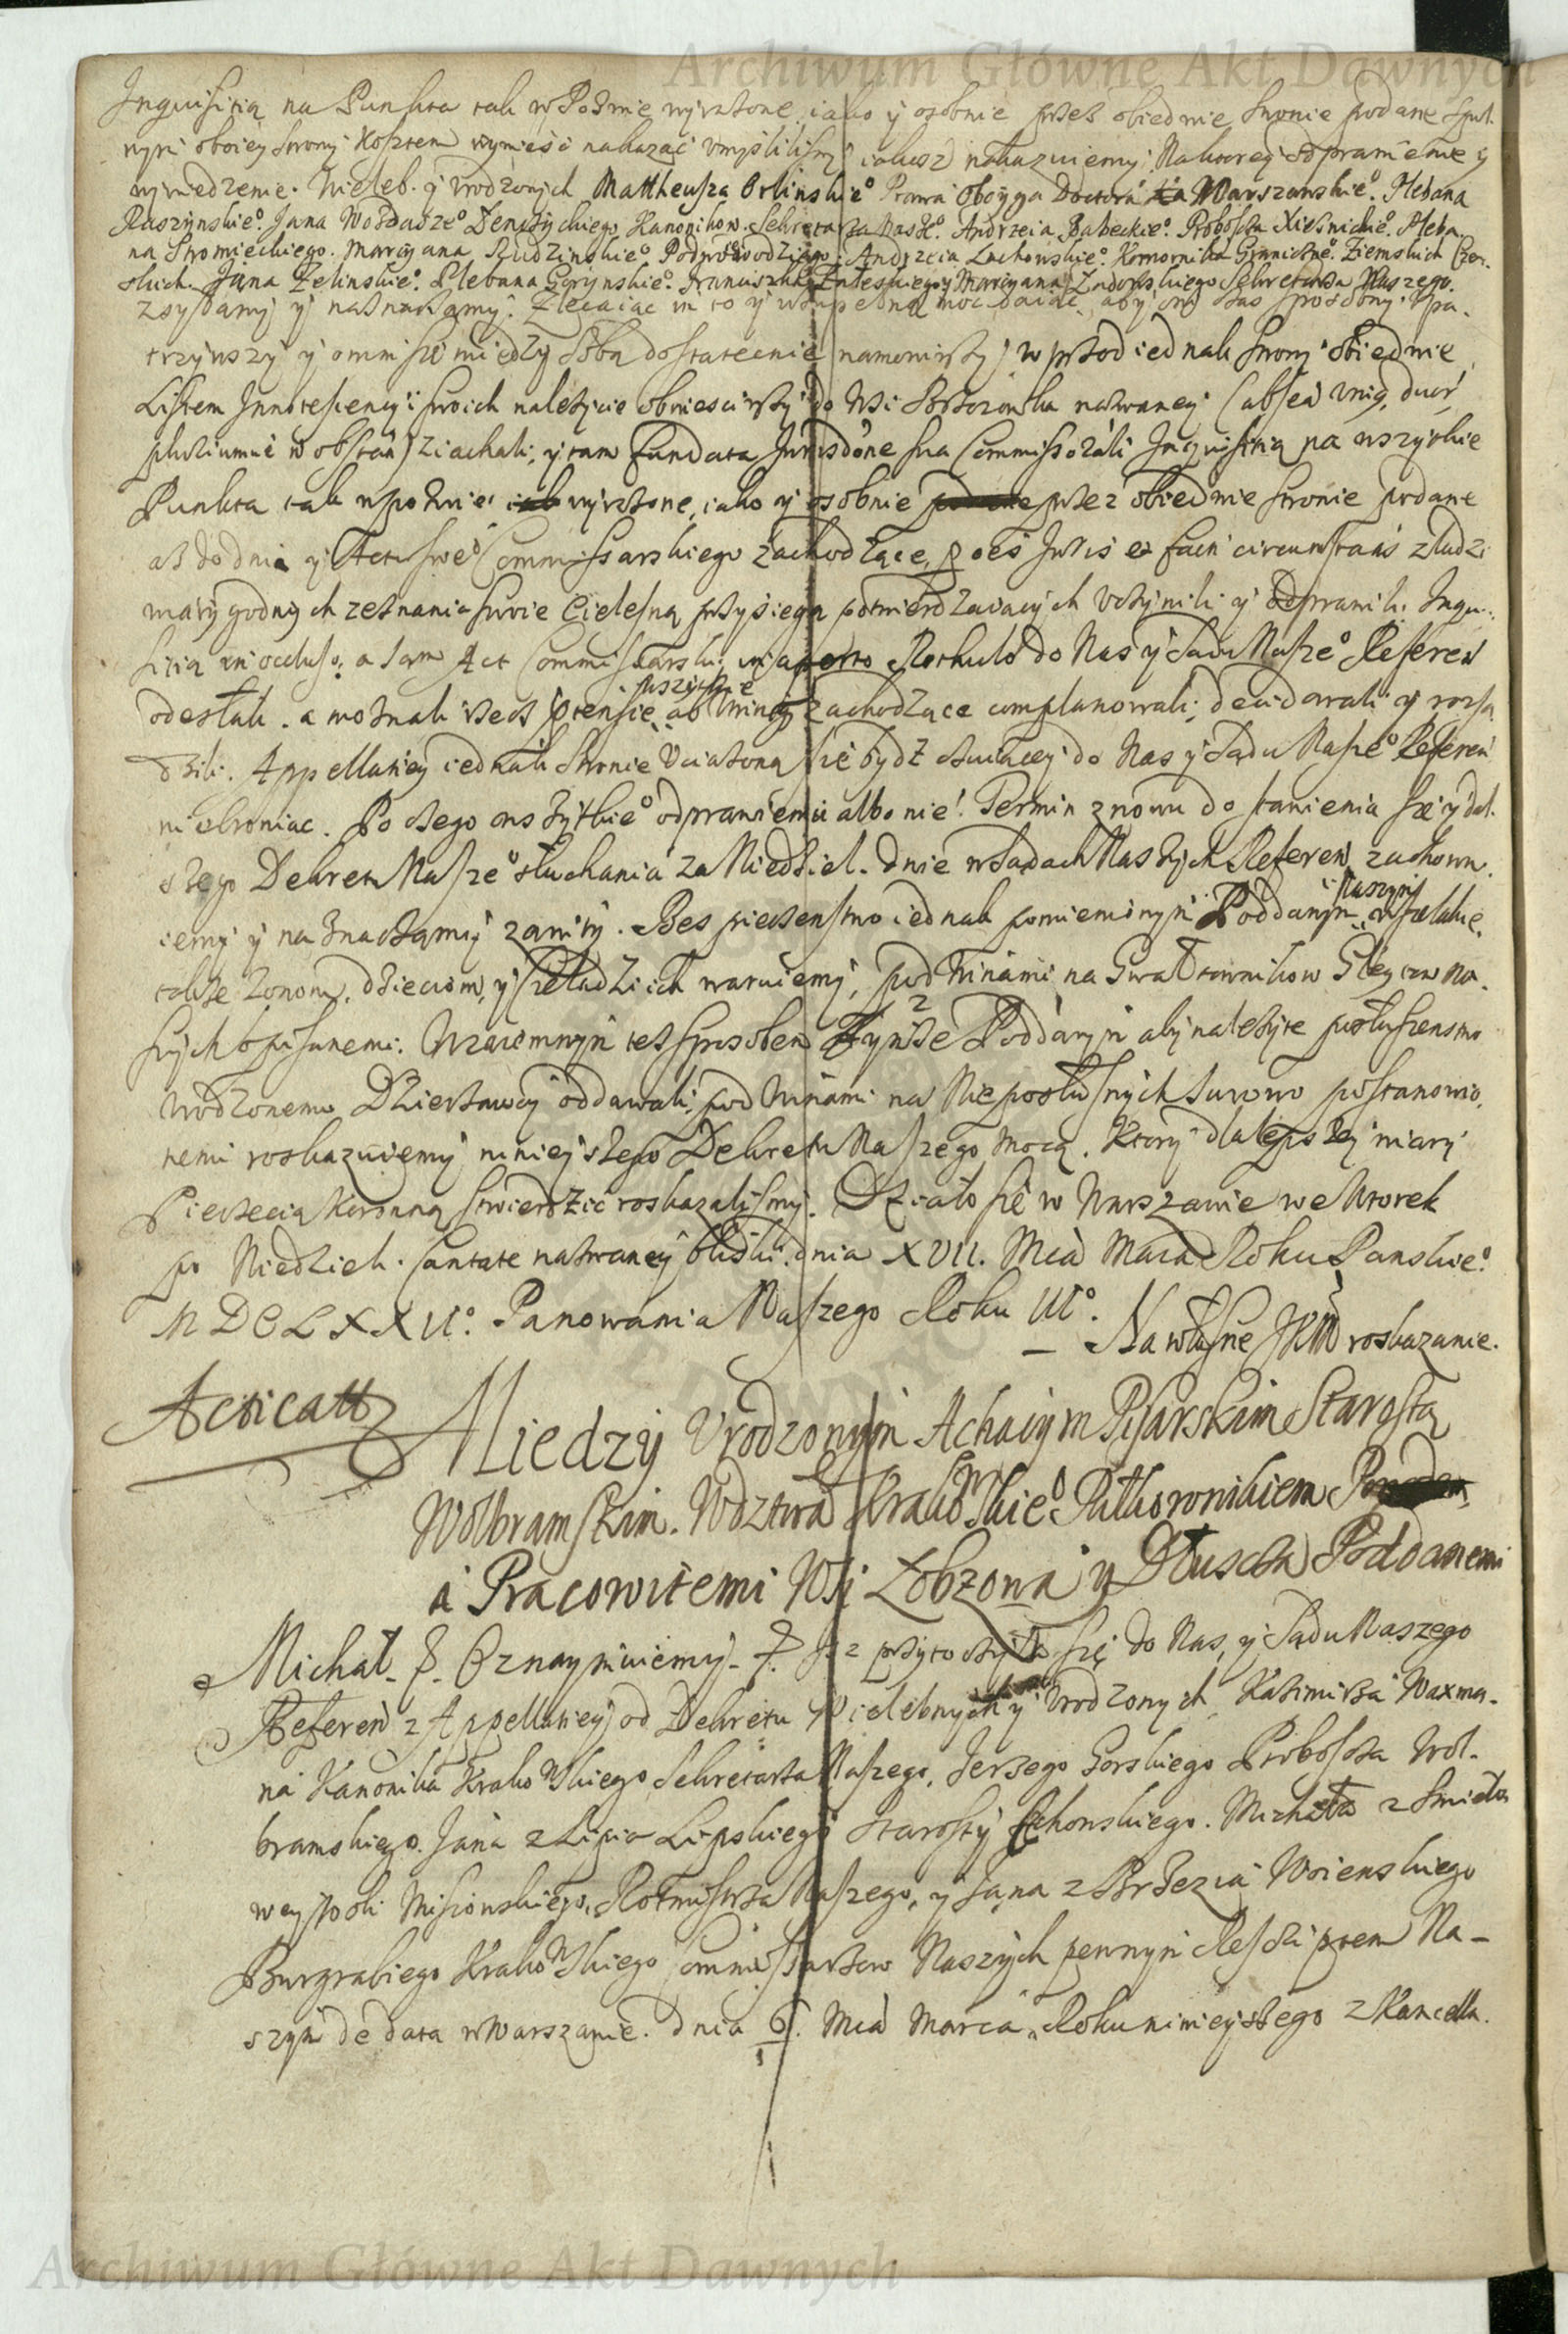 Archiwum Główne Akt Dawnych
Inquisitią na Punkta tak w Pozwie wyrażone, iako y osobnie przez obiedwie stronie podane spul-
nym oboiey strony kosztem wywieść nakazać vmyśliliśmy iakosz nakazuiemy. Na ktorey odprawienie y
wywiedzenie. Wieleb. y Vrodzonych Mattheusza Orlinskie° Prawa oboyga Doctora Warszawskie°. Plebana
Raszynskie°. Jana Kanonikow. Sekretarza Nasze°. Andrzeia Babeckie°. Proboscza Plebana
na Stromieckiego. Marcyana Rudzinskie° Andrzeia Lachowskie°. Komornika Graniczne°. Ziemskich Czer-
skich. Jana Zelinskie°. Plebana Franciszka Zaleskiego y Marcyana Zadorskiego Sekretarza Naszego.
zsyłamy y naznaczamy. Zlecaiąc im to y wzupełną moc daiąc, aby oni czas sposobny vpa-
trzywszy y omnisie miedzy sobą dostatecznie namowiwszy, w przod iednak strony obiedwie
Listem Innotescency i swoich należycie obwiesciwszy do Wsi nazwaney (absen vnig, duor,
pluriumue w obstan) ziachali, y tam fundata Jurisdōne sua Commissoriali Inquisitią na wszytkie
Punkta tak wpozwie wyrażone, iako y osobnie przez obiedwie stronie podane
asz do dnia y Actu swe° Commissarskiego zachodzące, p oēs Juris et facti circumstans zludzi
wiary godnych zeznania swoie cielesną przysięgą potwierdzaiących vczynili y odprawili. Inqui-
sitią in occluso, a sam Act Commissarski in aperto Rotulo do Nas y Sądu Nasze° Referen
odesłali. a możnali rzecz prensie wszytkie ab zachodzące complanowali, decidowali y rozsą-
dzili. Appellatiey iednak stronie vciążoną się bydź czuiącey do Nas y Sądu Nasze° Referen
nie broniąc. Po czego wszytkie° odprawieniu albo nie! Termin znowu do stawienia się y dal-
szego Dekretu Nasze° słuchania za Niedziel. dnie w Sądach Naszych Referen zachowu-
iemy y naznaczamy zawity. Bespieczenstwo iednak pomienionym Poddanym Naszym wszelakie,
także żonom, dzieciom, y czeladzi ich waruiemy, pod winami na Gwałtownikow Gleytow Na-
szych opisanemi. Wzaiemnym też sposobem tymże Poddanym aby należyte posłuszenstwo
Vrodzonemu Dzierżawcy oddawali, pod winami na nieposłusznych surowo postanowio-
nemi roskazuiemy ninieyszego Dekretu Naszego mocą. Ktory dla lepszey wiary
Pieczęcią Koronną stwierdzić roskazaliśmy. Działo się w Warszawie we Wtorek
po Niedzieli Cantate nazwaney bliski. dnia XVII. Mca Maia Roku Panskie°
MDCLXXII°. Panowania Naszego Roku III°.
– Na własne JKM roskazanie.
Acticatt
Miedzy Vrodzonym Achacym Pisarskim Starostą
Wolbramskim. Wdztwa Krakowskie° Pułkownikiem
a Pracowitemi Wsi Łobzowa y Dłuscza Poddanemi
Michał. P. Oznaymuiemy. P. Jz przytoczyła się do Nas, y Sądu Naszego
Referen z Appellatiey od Dekretu Wielebnych y Vrodzonych Kazimirza Waxma-
na Kanonika Krakowskiego Sekretarza Naszego, Jerzego Gorskiego Proboscza Wol-
bramskiego. Jana z Lipia Lipskiego Starosty Czchowskiego. Michała z Smieto
Misiowskiego, Rotmistrza Naszego, y Jana z Brzezia Woienskiego
Burgrabiego Krakowskiego Commissarzow Naszych pewnym Rescriptem Na-
szym de data w Warszawie. dnia 6. Mca Marca, Roku ninieyszego z Kancella-
Archiwum Główne Akt Dawnych